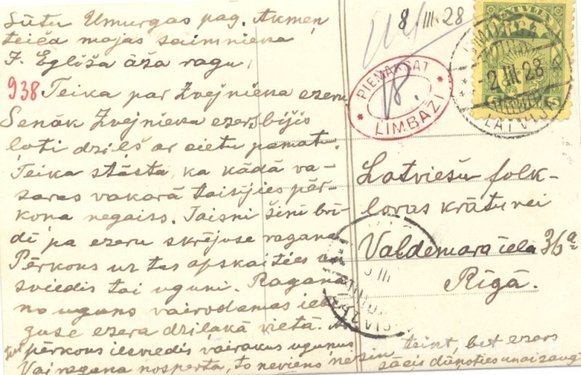 Sūtu Umurgas pag. Akmen
teiča mājas saimnieka
J. Eglīša āža ragu,
938 Teika par Zvejnieka ezeru
Senāk Zvejnieka ezers bijis
ļoti dziļš ar cietu pamatu.
Teika stāsta, ka kādā va-
saras vakarā taisījies pēr-
kona negaiss. Taisni šinī brī-
dī pa ezeru skrējuse ragana
Pērkons uz tas apskaities un
sviedis tai uguni. Ragana
no uguns vairodamās ieb
guse ezera dziļākā vietā.
pērkons iesviedis vairākus ugunus
Vai ragana nosperta, to neviens nezin
teint, bet ezers
sācis dūņoties un aizaug
8/III. 28
PIEMAKSĀT
LIMBAŽI
LATVIJA
5
2 III 28
LATVIJA
Latviešu folk-
loras krātuvei
Valdemāra iela 36a
Rīgā.
III